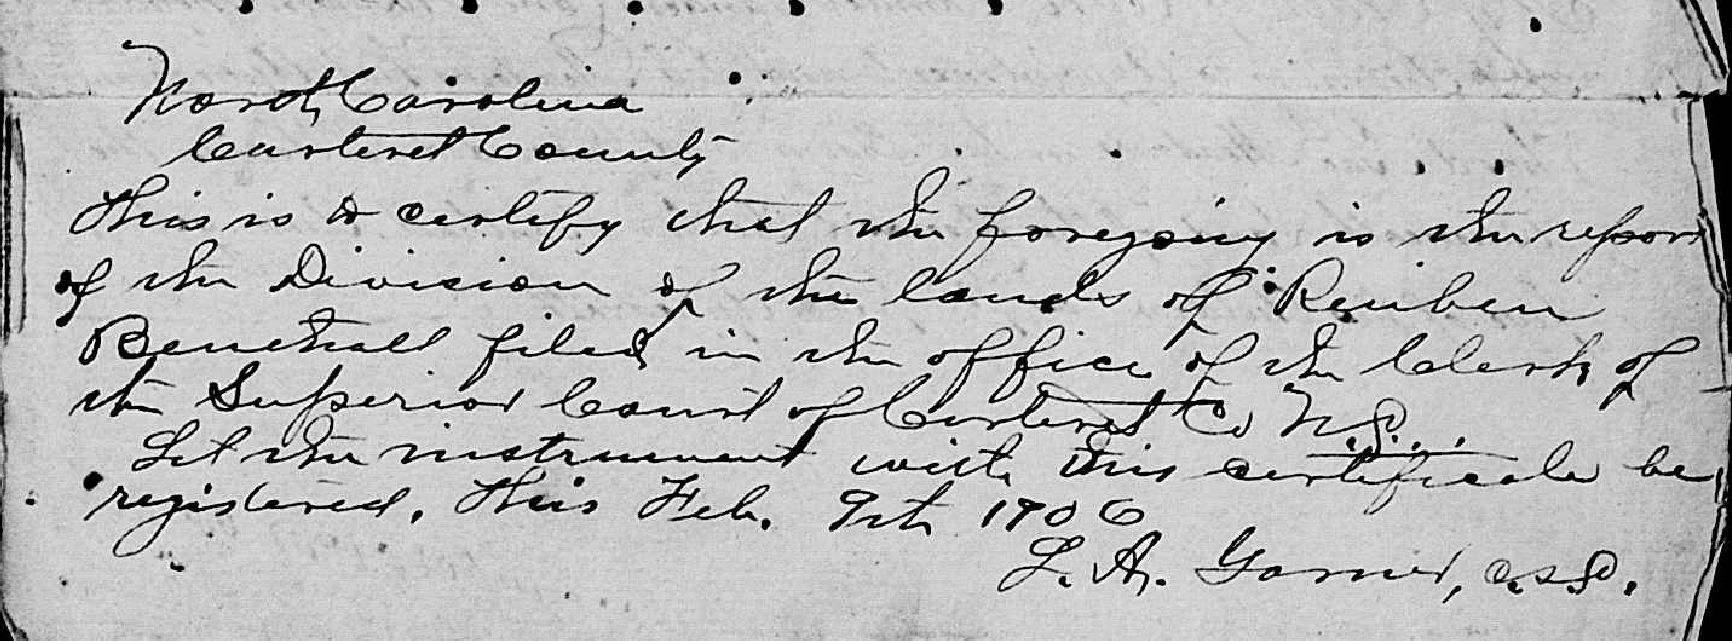 North Carolina
Carteret County
This is to certify that the foregoing is the report
of the Division of the lands of Reuben
Benthall filed in the office of the Clerk of
the Superior Court of Carteret Co N.C.
Let the instrument with this certificate be
registered. This Feb. 9th 1906
L. A. Garner, C.S.C.